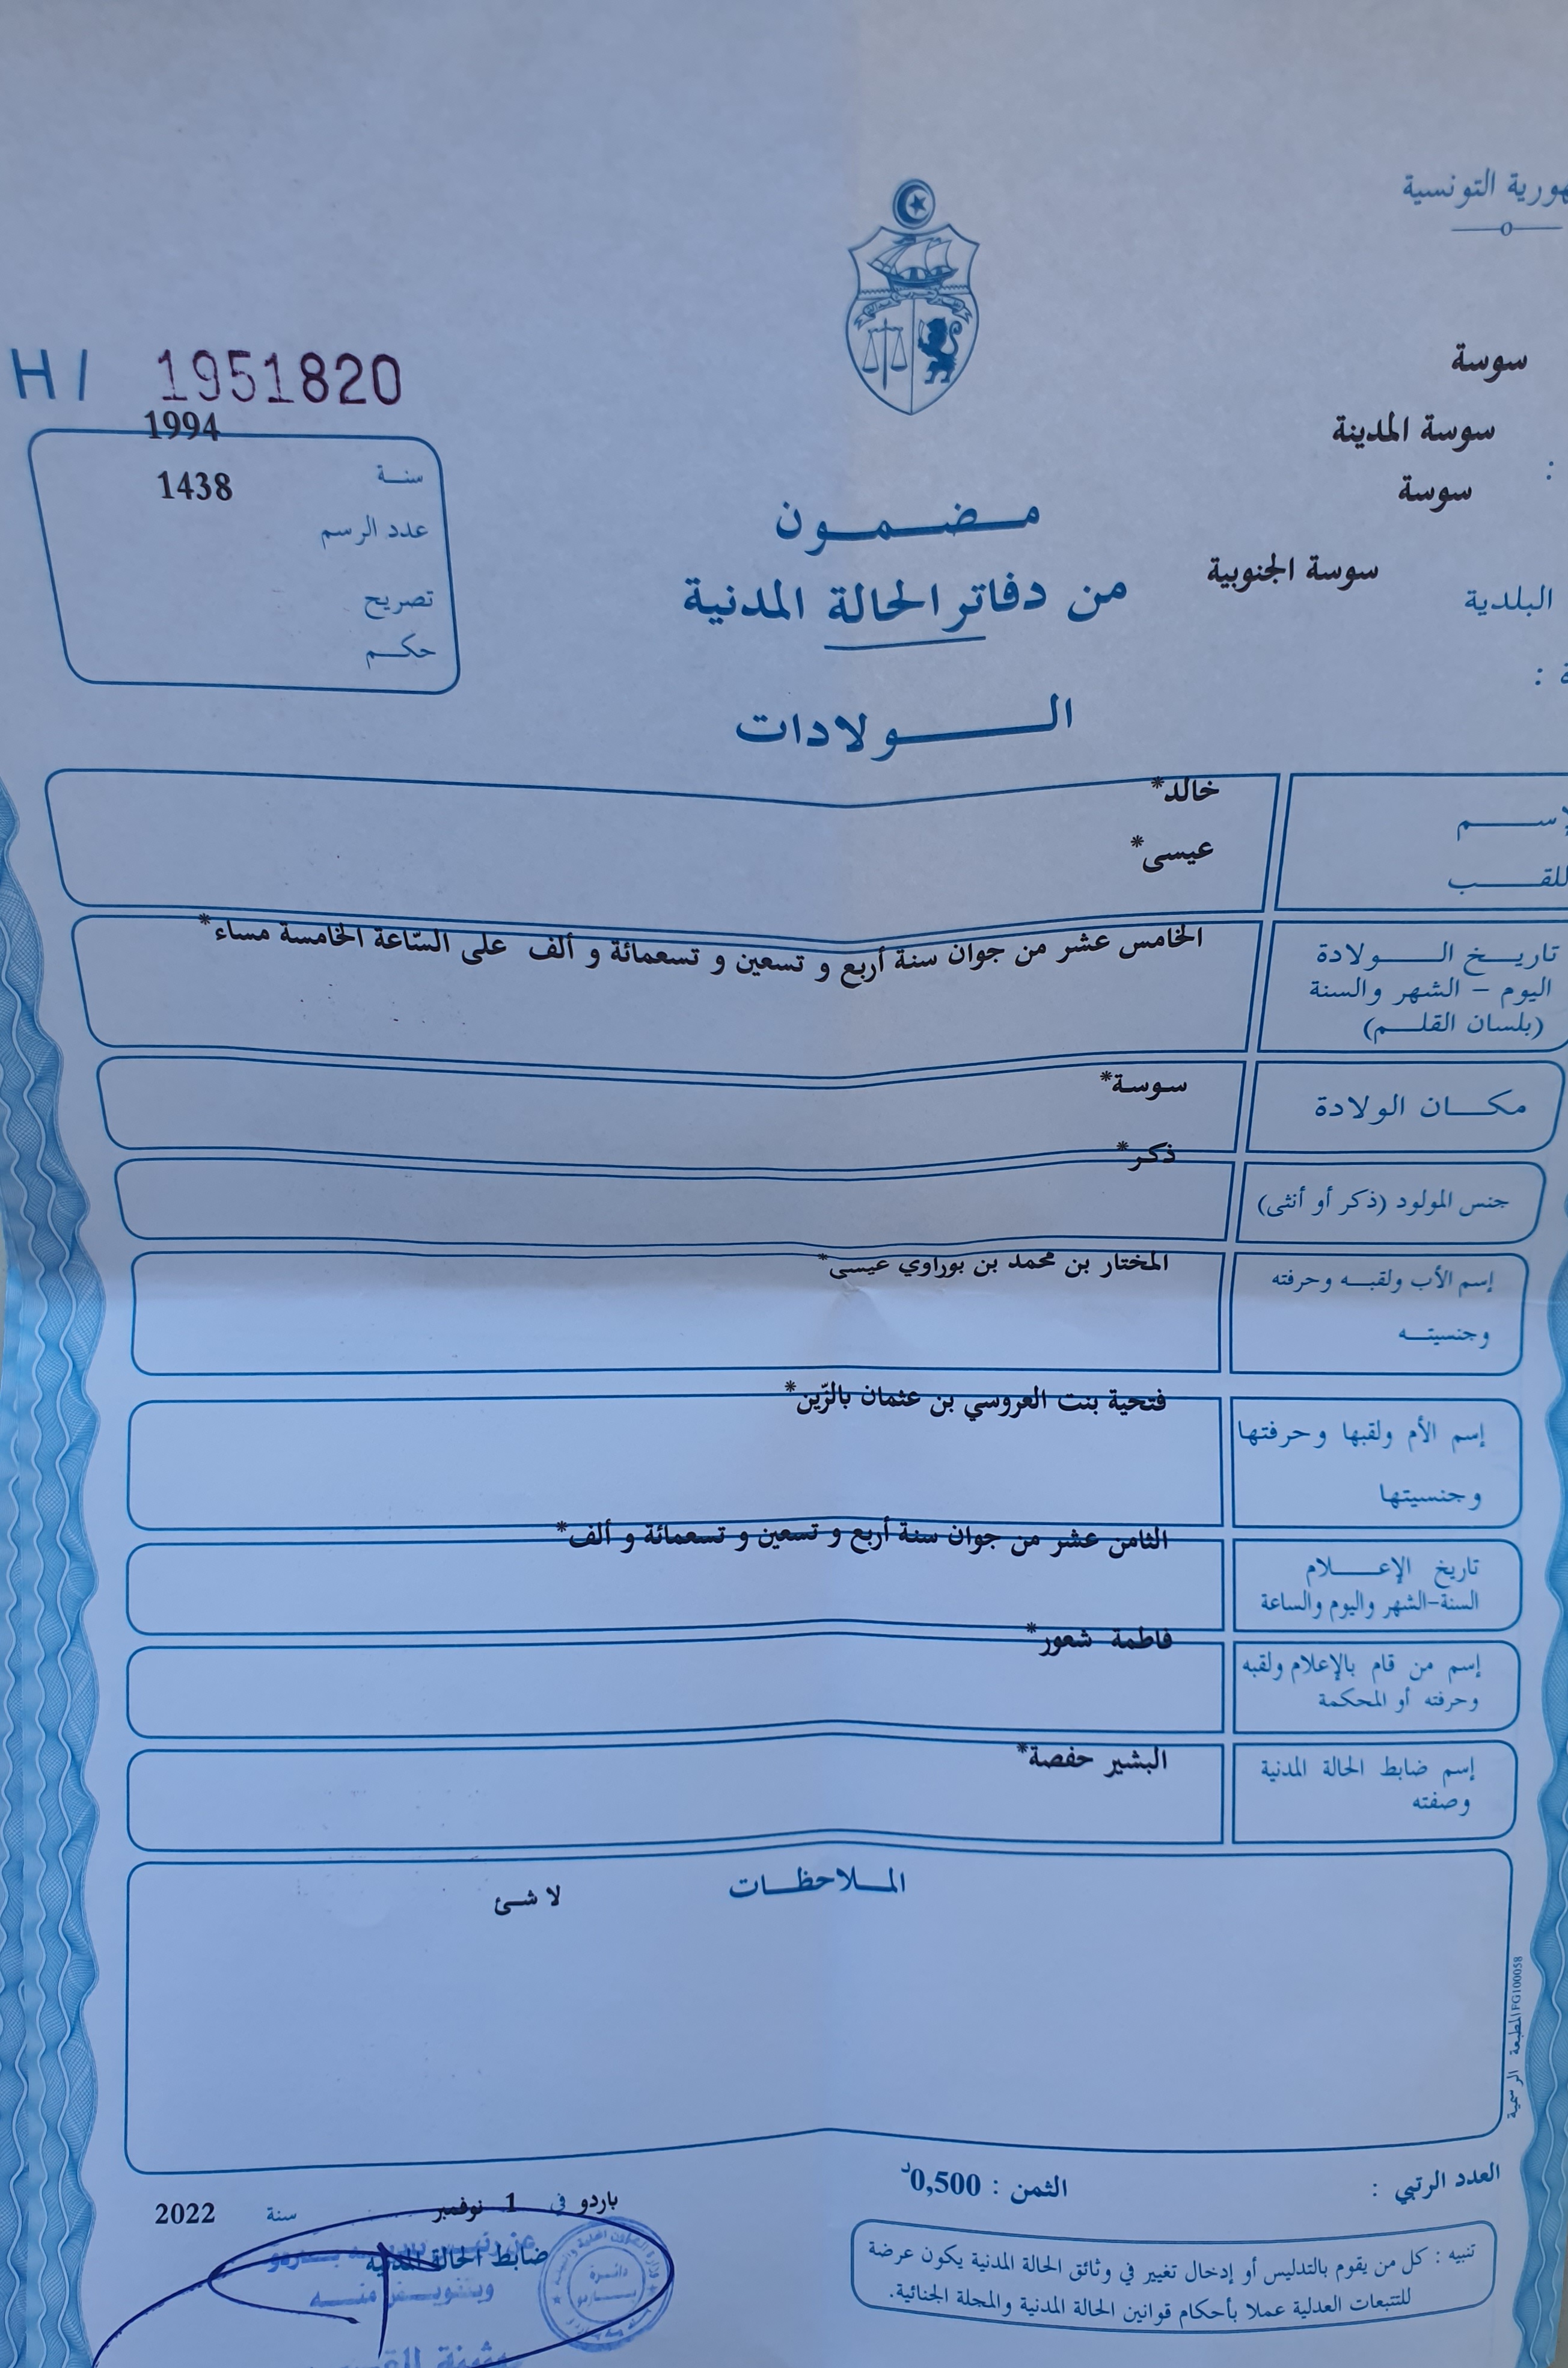 التونسية
H/ 1951820
سوسة
1994
سوسة المدينة
سنة
1438
سوسة
عدد الرسم
مضمون
سوسة الجنوبية
من دفاتر الحالة المدنية
البلدية
تصريح
حكم
الولادات
خالد*
عيسى*
الخامس عشر من جوان سنة أربع و تسعين و تسعمائة و ألف على السّاعة الخامسة مساء*
تاريخ الولادة
اليوم – الشهر والسنة
(بلسان القلم)
سوسة*
مكان الولادة
ذكر*
جنس المولود (ذكر أو أنثى)
المختار بن محمد بن بوراوي عيسى*
إسم الأب ولقبه وحرفته
وجنسيته
فتحية بنت العروسي بن عثمان بالزّين*
إسم الأم ولقبها وحرفتها
وجنسيتها
الثامن عشر من جوان سنة أربع و تسعين و تسعمائة و ألف*
تاريخ الإعلام
السنة-الشهر واليوم والساعة
فاطمة شعور*
إسم من قام بالإعلام ولقبه
وحرفته أو المحكمة
البشير حفصة*
إسم ضابط الحالة المدنية
وصفته
الملاحظات
لا شئ
المطبعة الرسمية FG100058
العدد الرتبي :
الثمن : 0,500د
باردو في 1 نوفمبر سنة 2022
ضابط الحالة المدنية
وبتفويض منه
دائرة
باردو
تنبيه : كل من يقوم بالتدليس أو إدخال تغيير في وثائق الحالة المدنية يكون عرضة
للتتبعات العدلية عملا بأحكام قوانين الحالة المدنية والمجلة الجنائية.